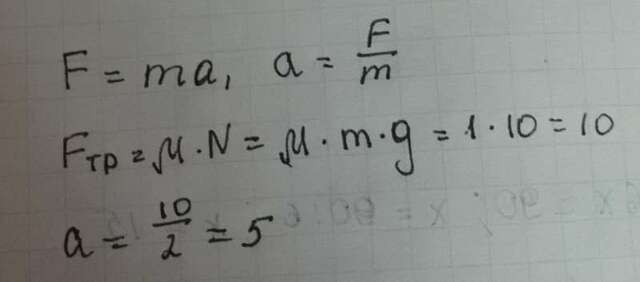 F = ma, a = F/m
Fтр = μ·N = μ·m·g = 1·10 = 10
a = 10/2 = 5